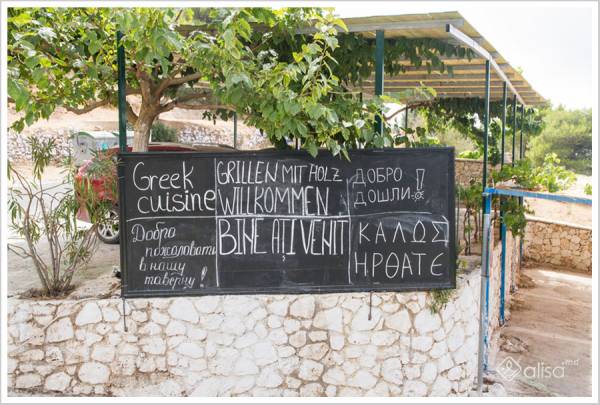 Greek
cuisine
GRILLEN MIT HOLZ
WILLKOMMEN.
ДОБРО
ДОШЛИ!
Добро
пожаловать
в нашу
таверну!
BINE AȚI VENIT
ΚΑΛΩΣ
ΗΡΘΑΤΕ
alisa.md